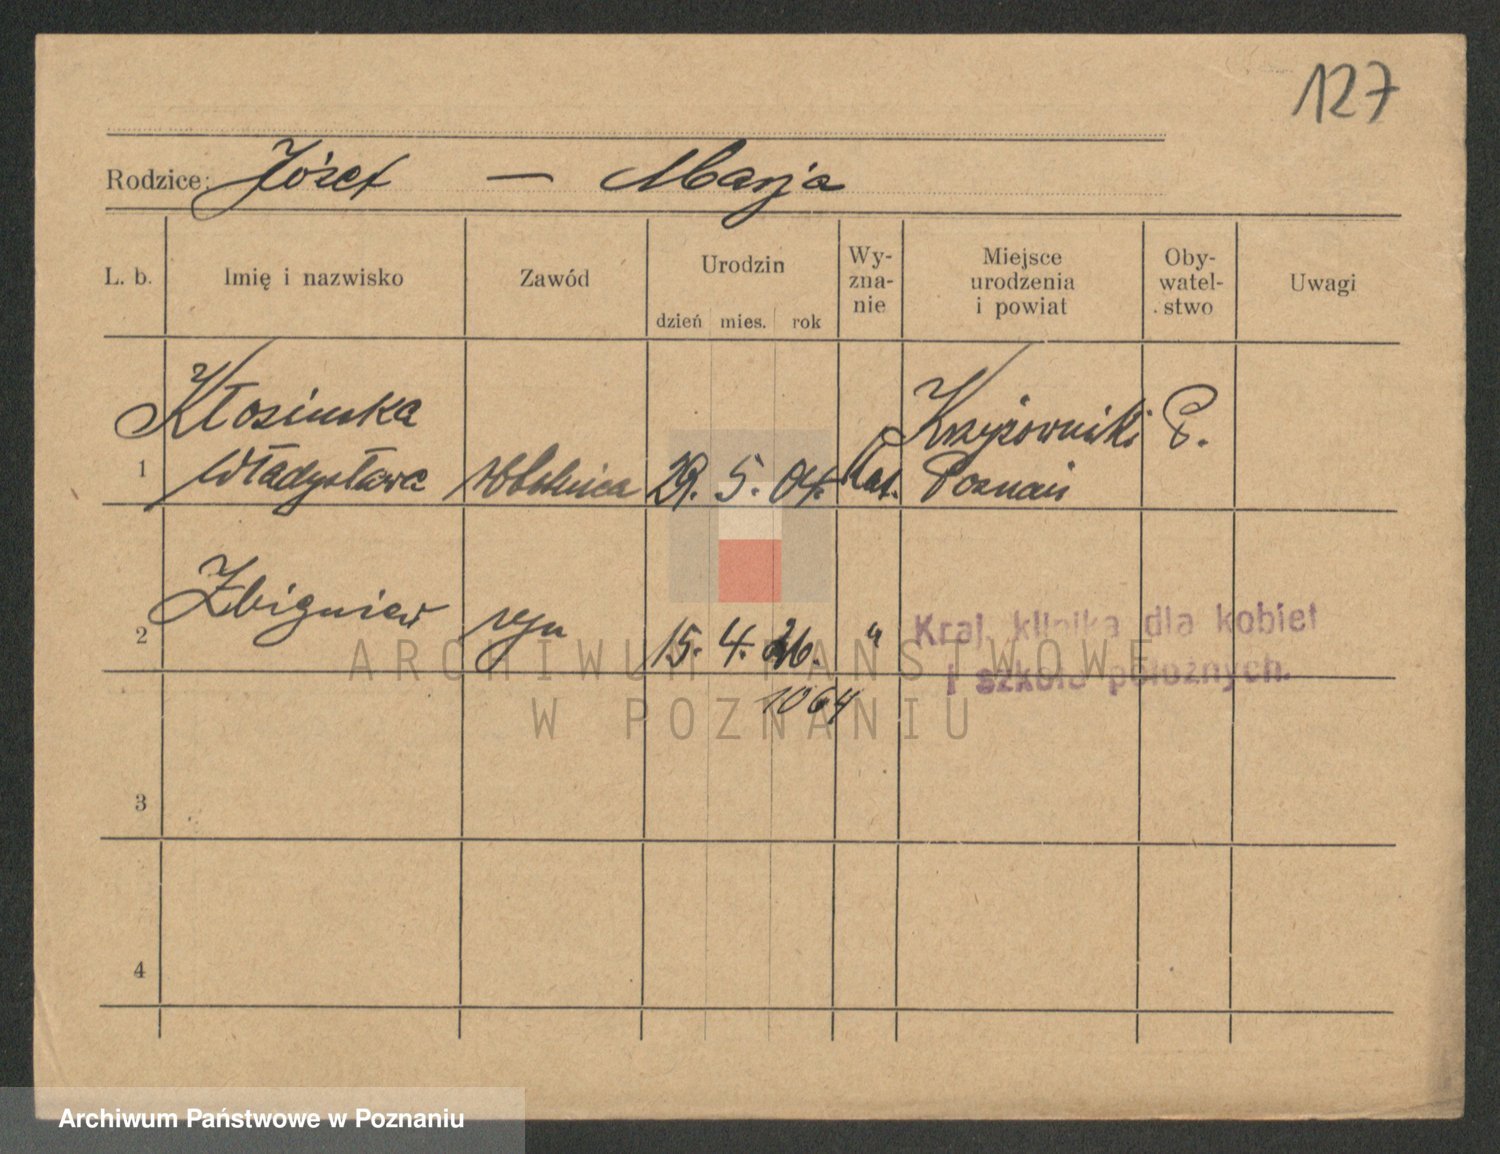 127
Rodzice: Józef — Marja
L. b. Imię i nazwisko Zawód Urodzin dzień mies. rok Wy- zna- nie Miejsce urodzenia i powiat Oby- watel- stwo Uwagi
Kłosinska Krzyżowniki P.
1 Władysława robotnica 29. 5. 04. kat. Poznań
2 Zbigniew syn 15. 4. 26. " Kraj. klinika dla kobiet
i szkoła położnych.
1064
3
4
ARCHIWUM PAŃSTWOWE
W POZNANIU
Archiwum Państwowe w Poznaniu